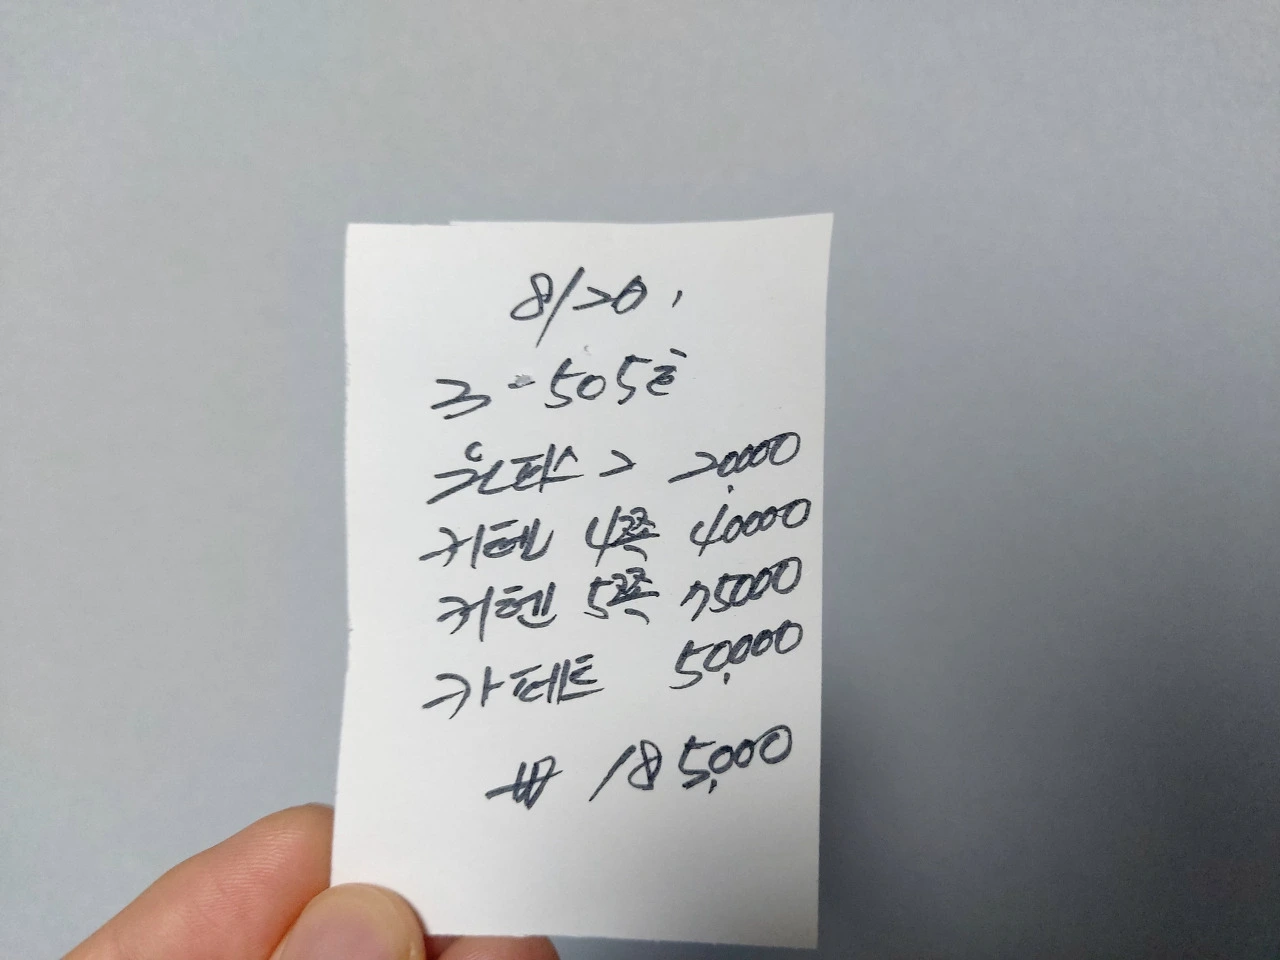 8/20.
3-505호
원피스 2 20,000
커텐 4쪽 40000
커텐 5쪽 75000
카페트 50,000
₩ 185,000